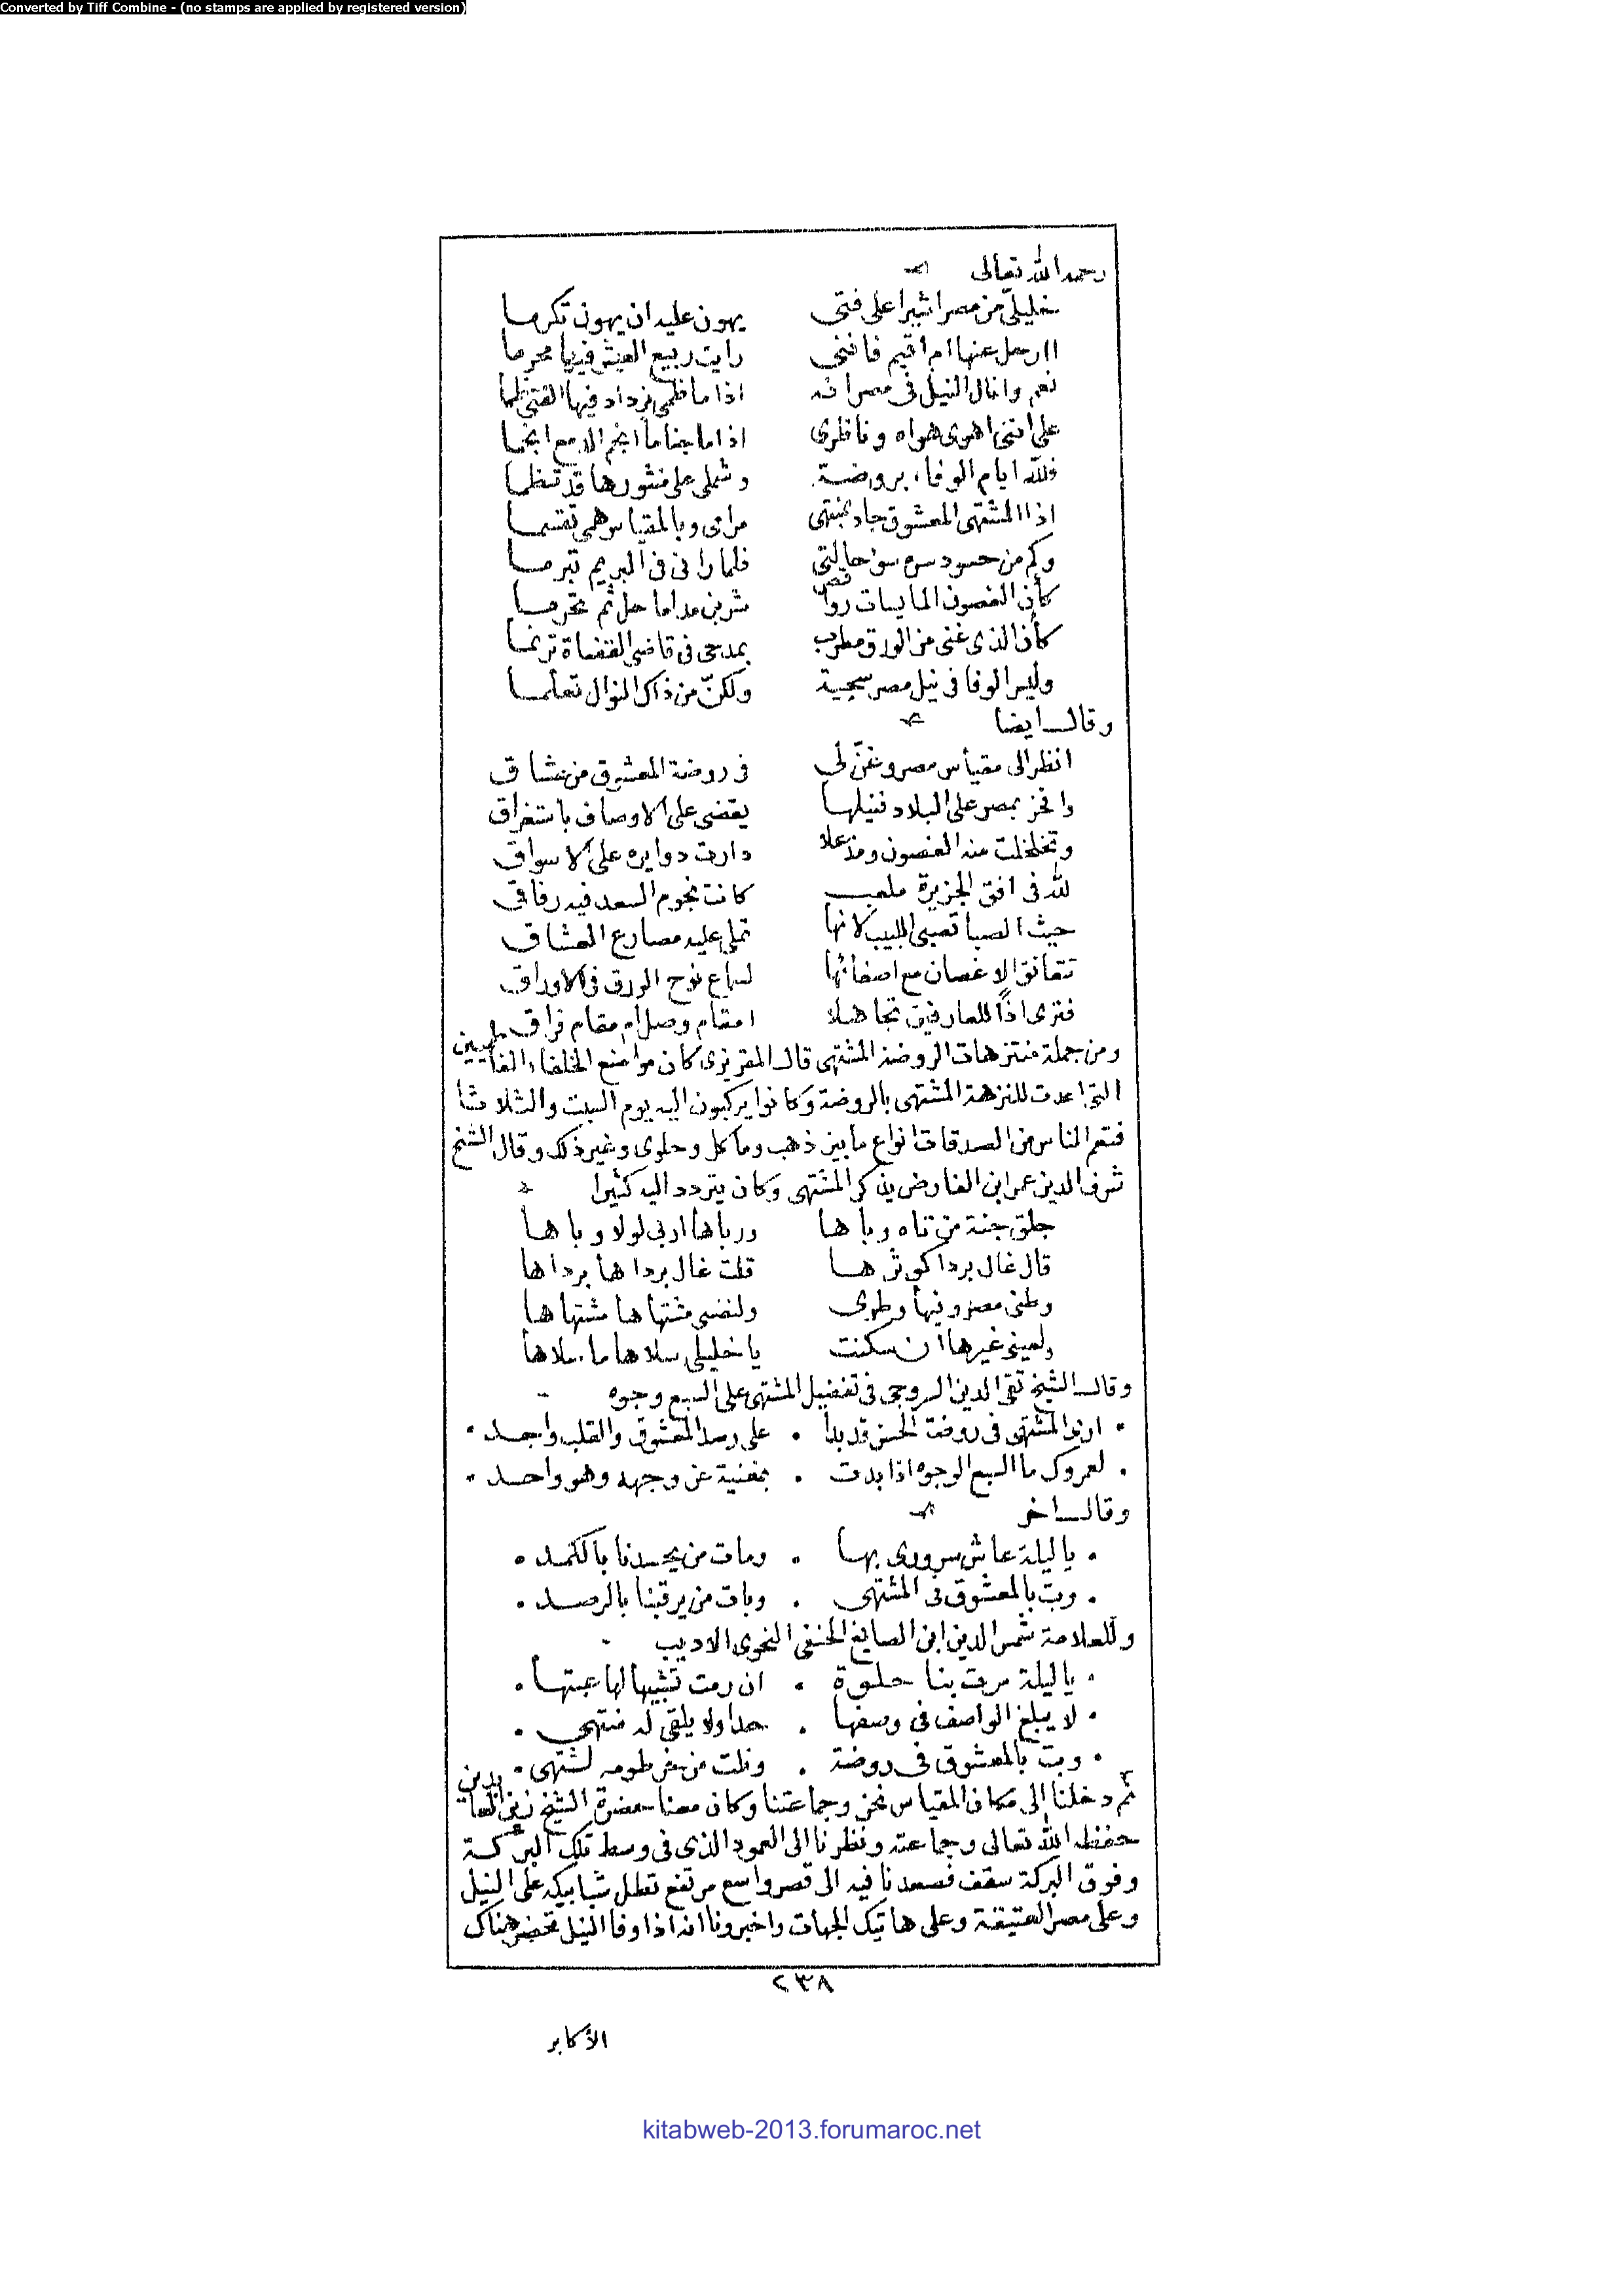 Converted by Tiff Combine - (no stamps are applied by registered version)
رحمه الله تعالى
خليليّ من مصر اشيرا على فتى يهون عليه ان يهون تكرما
اارحل عنها ام اقيم فانني رايت ربيع العيش فيها محرما
نعم وانال النيل في مصر انه اذا ما ظمى يزداد فيها الفتى ظما
على انني اهوى هواه وناظرى اذا ما انجم الادمع انجما
فلله ايام الوفاء بروضة وشملى على منثورها قد تنظما
اذا المشتهى المعشوق جاد بمنتهى مرامى وبالمقياس همى تقسما
وكم من حسود سره سوء حالتى فلما رانى فى البريم تبرما
كأن الغصون المايسات رواقص شربن مداما حل ثم تحرما
كأن الذى غنى من الورق مطرب بمدحى فى قاضى القضاة ترنما
وليس الوفا فى نيل مصر سجية ولكنّ من ذاك النوال تعلما
وقال ايضا
انظر الى مقياس مصر وغنّ لى فى روضة المعشوق من عشاق
وافخر بمصر على البلاد فنيلها يقضى على الاوصاف باستغراق
وتخلخلت منه الغصون ومذ علا دارت دوايره على الاسواق
لله فى افق الجزيرة ملعب كانت نجوم السعد فيه رفاقى
حيث الصبا تصبى اللبيب لانها تملى عليه مصارع العشاق
تتعانق الاغصان مع اصغائها لسماع نوح الورق فى الاوراق
فترى اذًا للعارفين تجاهلا امقام وصل ام مقام فراق
ومن جملة منتزهات الروضة المشتهى قال المقريزى كان مواضع الخلفاء الفاطميين
التى اعدت للنزهة المشتهى بالروضة وكانوا يركبون اليه يوم السبت والثلاثا
فتعم الناس من الصدقات انواع ما بين ذهب وماكل وحلوى وغير ذلك وقال الشيخ
شرف الدين عمر ابن الفارض يذكر المشتهى وكان يتردد اليه كثيرا
جلق جنة من تاه وباها ورباها اربى لولا وباها
قال غال بردا كوثرها قلت غال برداها برداها
وطنى مصر وفيها وطرى ولنفسى مشتهاها مشتهاها
ولعينى غيرها ان سكنت يا خليلى سلاها ما سلاها
وقال الشيخ تقى الدين السروجى فى تفضيل المشتهى على السبع وجوه
ارى المشتهى فى روضة الحسن قد بدا على رصد المعشوق والقلب واجد
لعمرك ما السبع الوجوه اذا بدت بمغنية عن وجهه وهو واحد
وقال اخر
يا ليلة عاش سرورى بها ومات من يحسدنا بالكمد
وبت بالمعشوق فى المشتهى وبات من يرقبنا بالرصد
وللعلامة شمس الدين ابن الصايغ الحنفى النحوى الاديب
يا ليلة مرت بنا حلوة ان رمت تشبيها لها عبتها
لا يبلغ الواصف فى وصفها حدا ولا يلقى له منتهى
وبت بالمعشوق فى روضة ونلت من خرطومه المشتهى
ثم دخلنا الى مكان المقياس نحن وجماعتنا وكان معنا حضرة الشيخ زين العابدين
حفظه الله تعالى وجماعته ونظرنا الى العمود الذى فى وسط تلك البركة
وفوق البركة سقف فصعدنا فيه الى قصر واسع مرتفع تطل شبابيكه على النيل
وعلى مصر العتيقة وعلى هاتيك الجهات واخبرونا انه اذا وفا النيل تحضر هناك
٢٣٨
الأكابر
kitabweb-2013.forumaroc.net